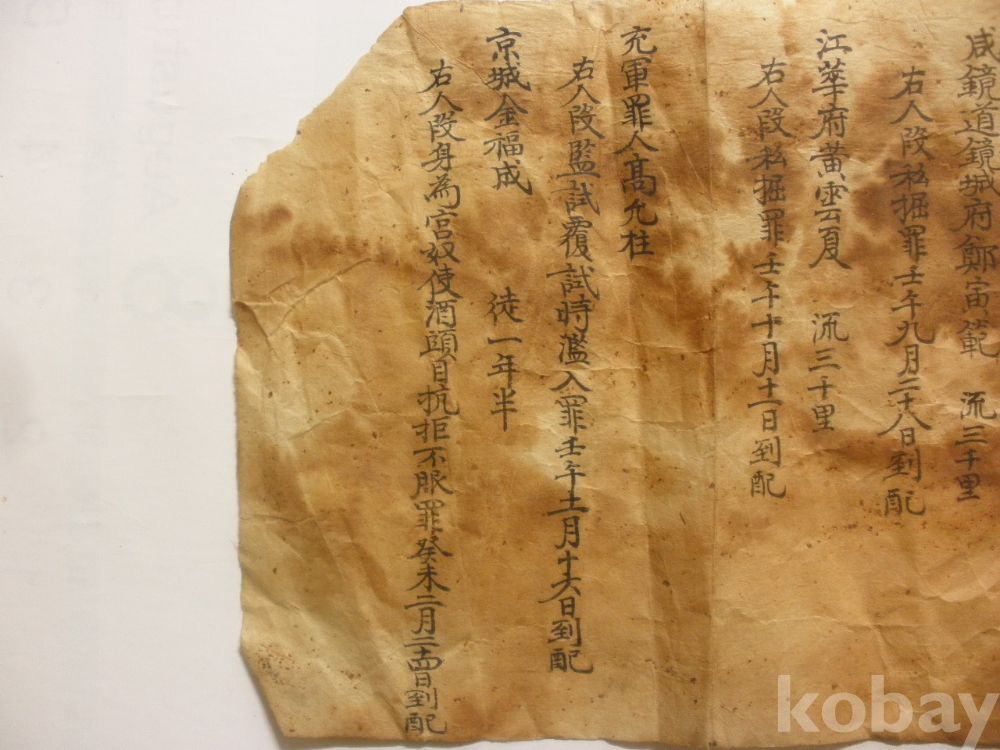 咸鏡道鏡城府鄭寅範 流三千里
右人段私掘罪壬午九月二十八日到配
江華府黃雲夏 流三千里
右人段私掘罪壬午十月十一日到配
充軍罪人高允柱
右人段監試覆試時濫入罪壬午十一月十六日到配
京城金福成 徒一年半
右人段身為宮奴使酒頭目抗拒不服罪癸未二月二十四日到配
kobay